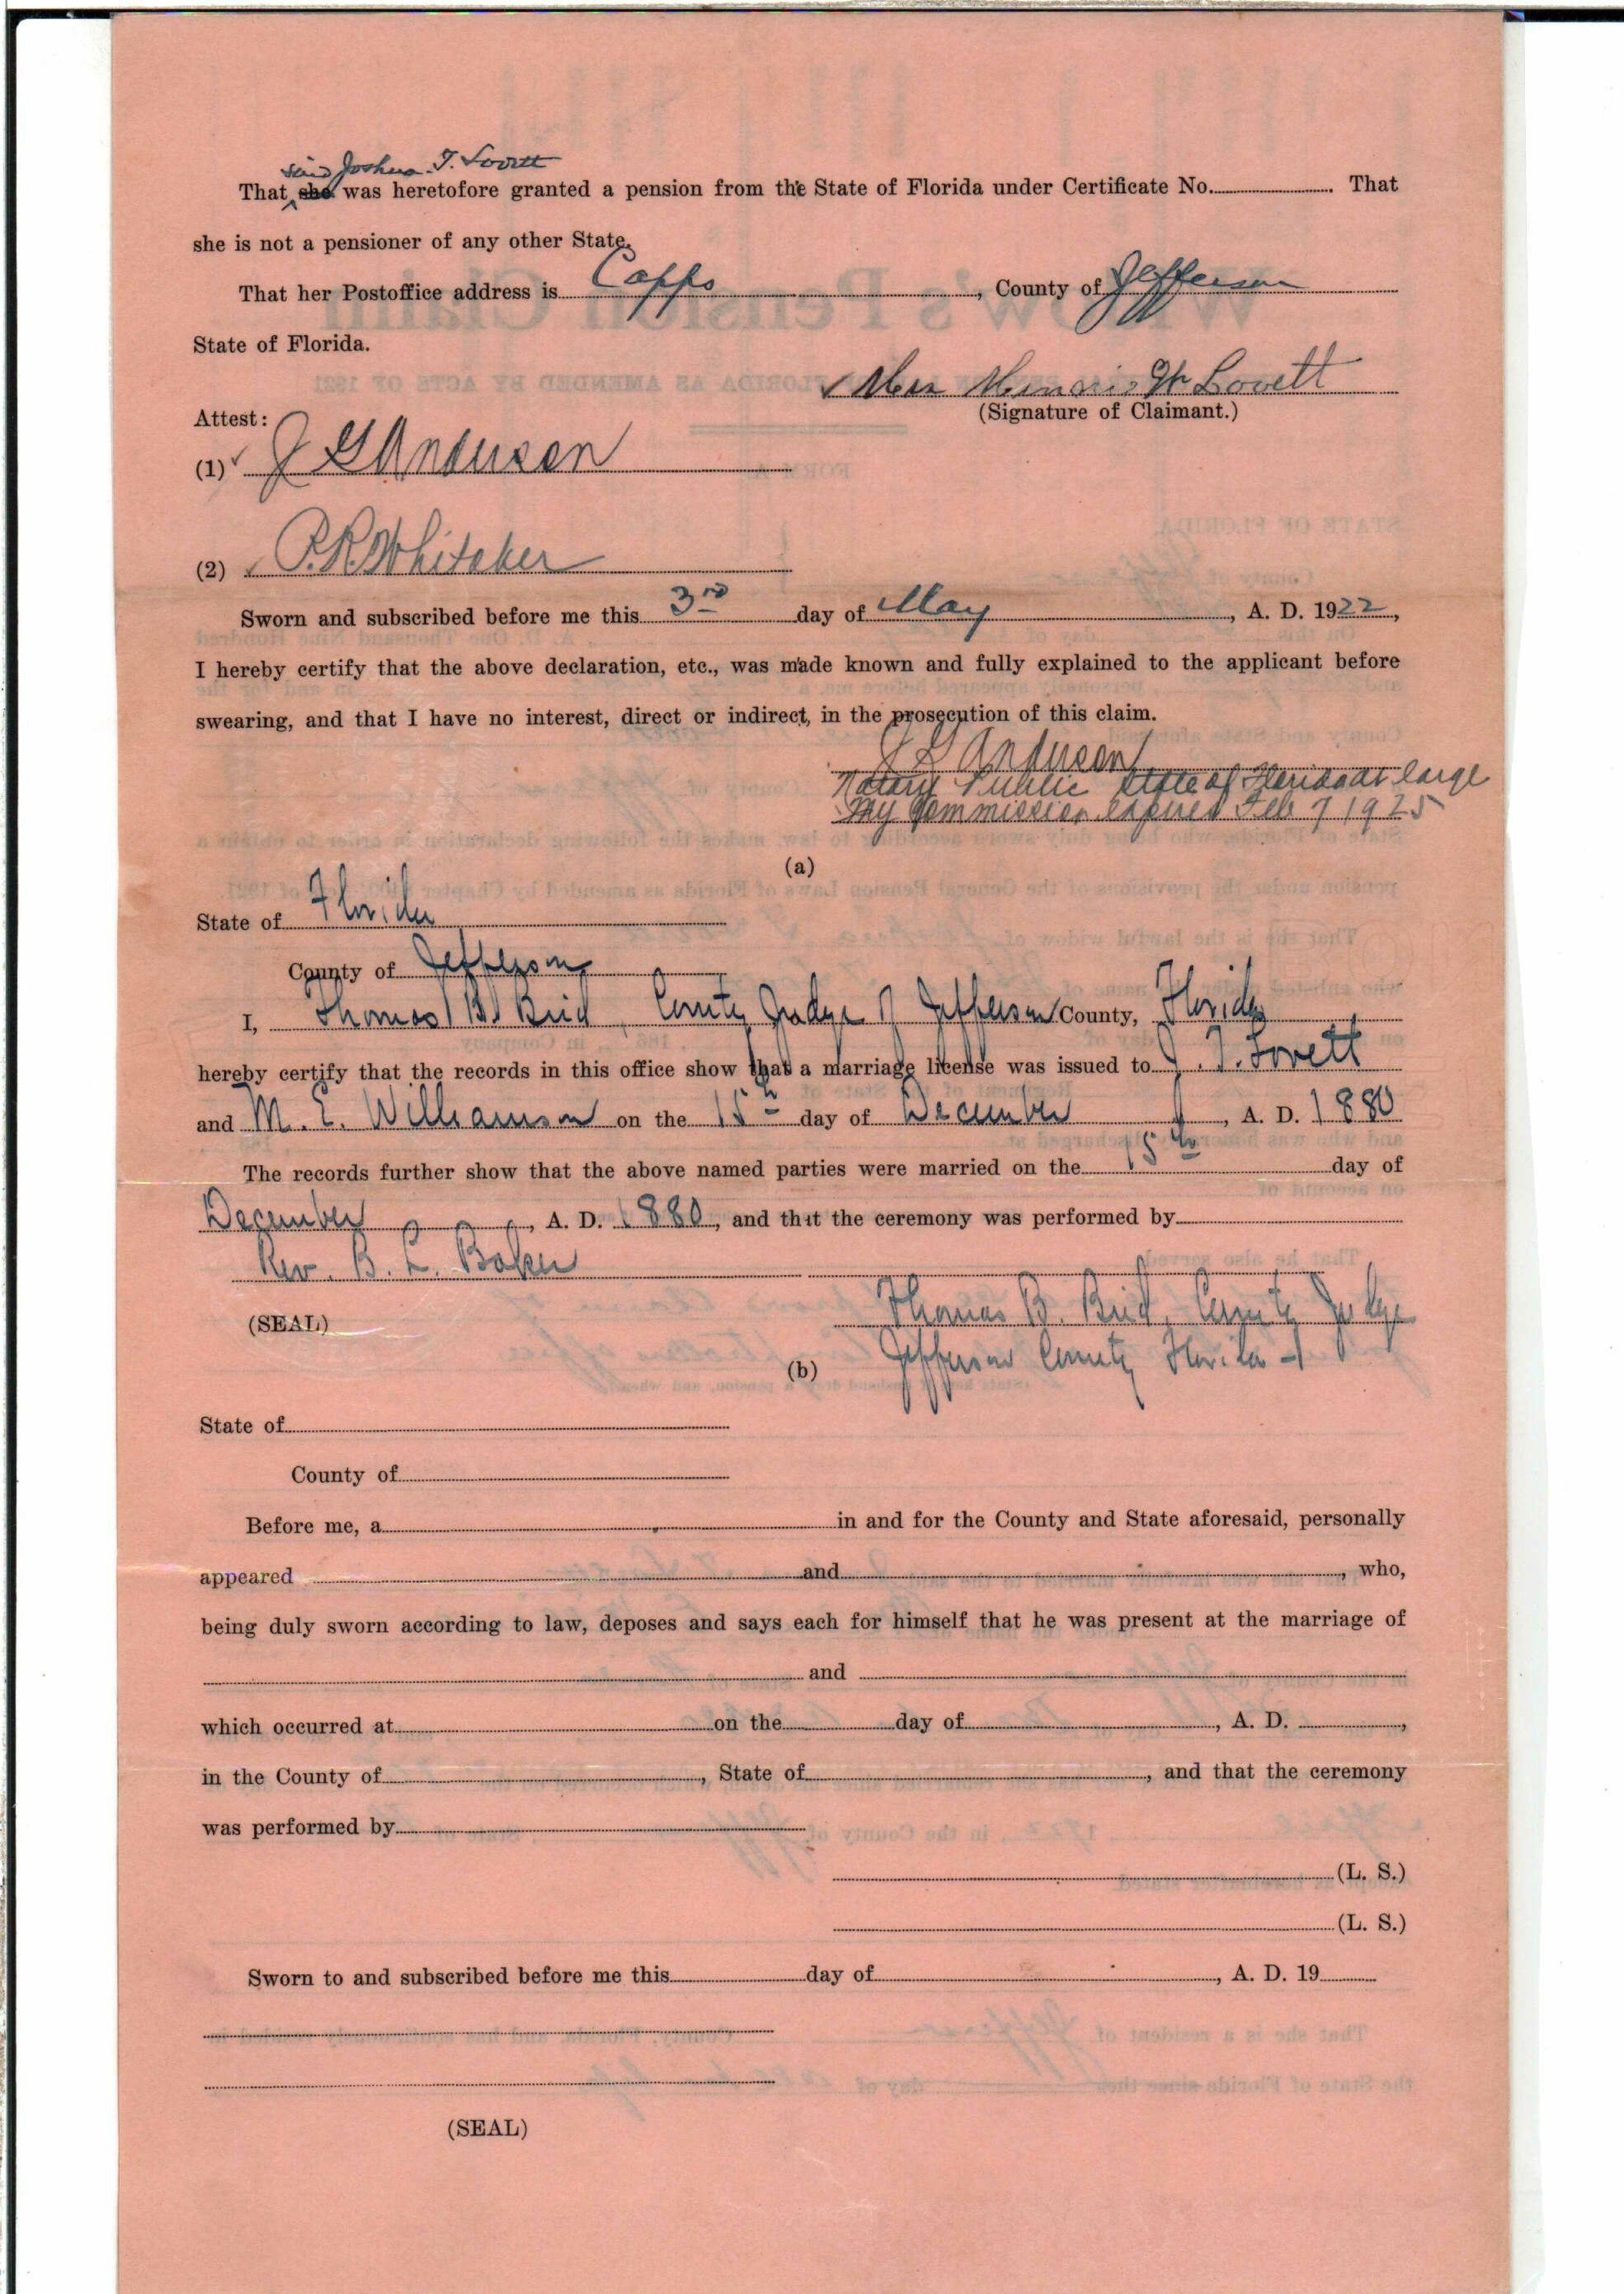 said Joshua T. Lovett
That she was heretofore granted a pension from the State of Florida under Certificate No. That
she is not a pensioner of any other State.
That her Postoffice address is Capps, County of Jefferson
State of Florida.
Mrs Minnie Lovett
(Signature of Claimant.)
Attest:
(1) J G Anderson
(2) P. R. Whitaker
Sworn and subscribed before me this 3rd day of May, A. D. 1922,
I hereby certify that the above declaration, etc., was made known and fully explained to the applicant before
swearing, and that I have no interest, direct or indirect, in the prosecution of this claim.
J G Anderson
Notary Public State of Florida at large
My Commission expires Feb 7 1925
(a)
State of Florida
County of Jefferson
I, Thomas B. Bird, County Judge of Jefferson County, Florida
hereby certify that the records in this office show that a marriage license was issued to J. T. Lovett
and M. E. Williamson on the 15th day of December, A. D. 1880
The records further show that the above named parties were married on the 15th day of
December, A. D. 1880, and that the ceremony was performed by
Rev. B. L. Baker
(SEAL)
Thomas B. Bird, County Judge
Jefferson County Florida
(b)
State of
County of
Before me, a in and for the County and State aforesaid, personally
appeared and , who,
being duly sworn according to law, deposes and says each for himself that he was present at the marriage of
and
which occurred at on the day of , A. D. ,
in the County of , State of , and that the ceremony
was performed by
(L. S.)
(L. S.)
Sworn to and subscribed before me this day of , A. D. 19
(SEAL)